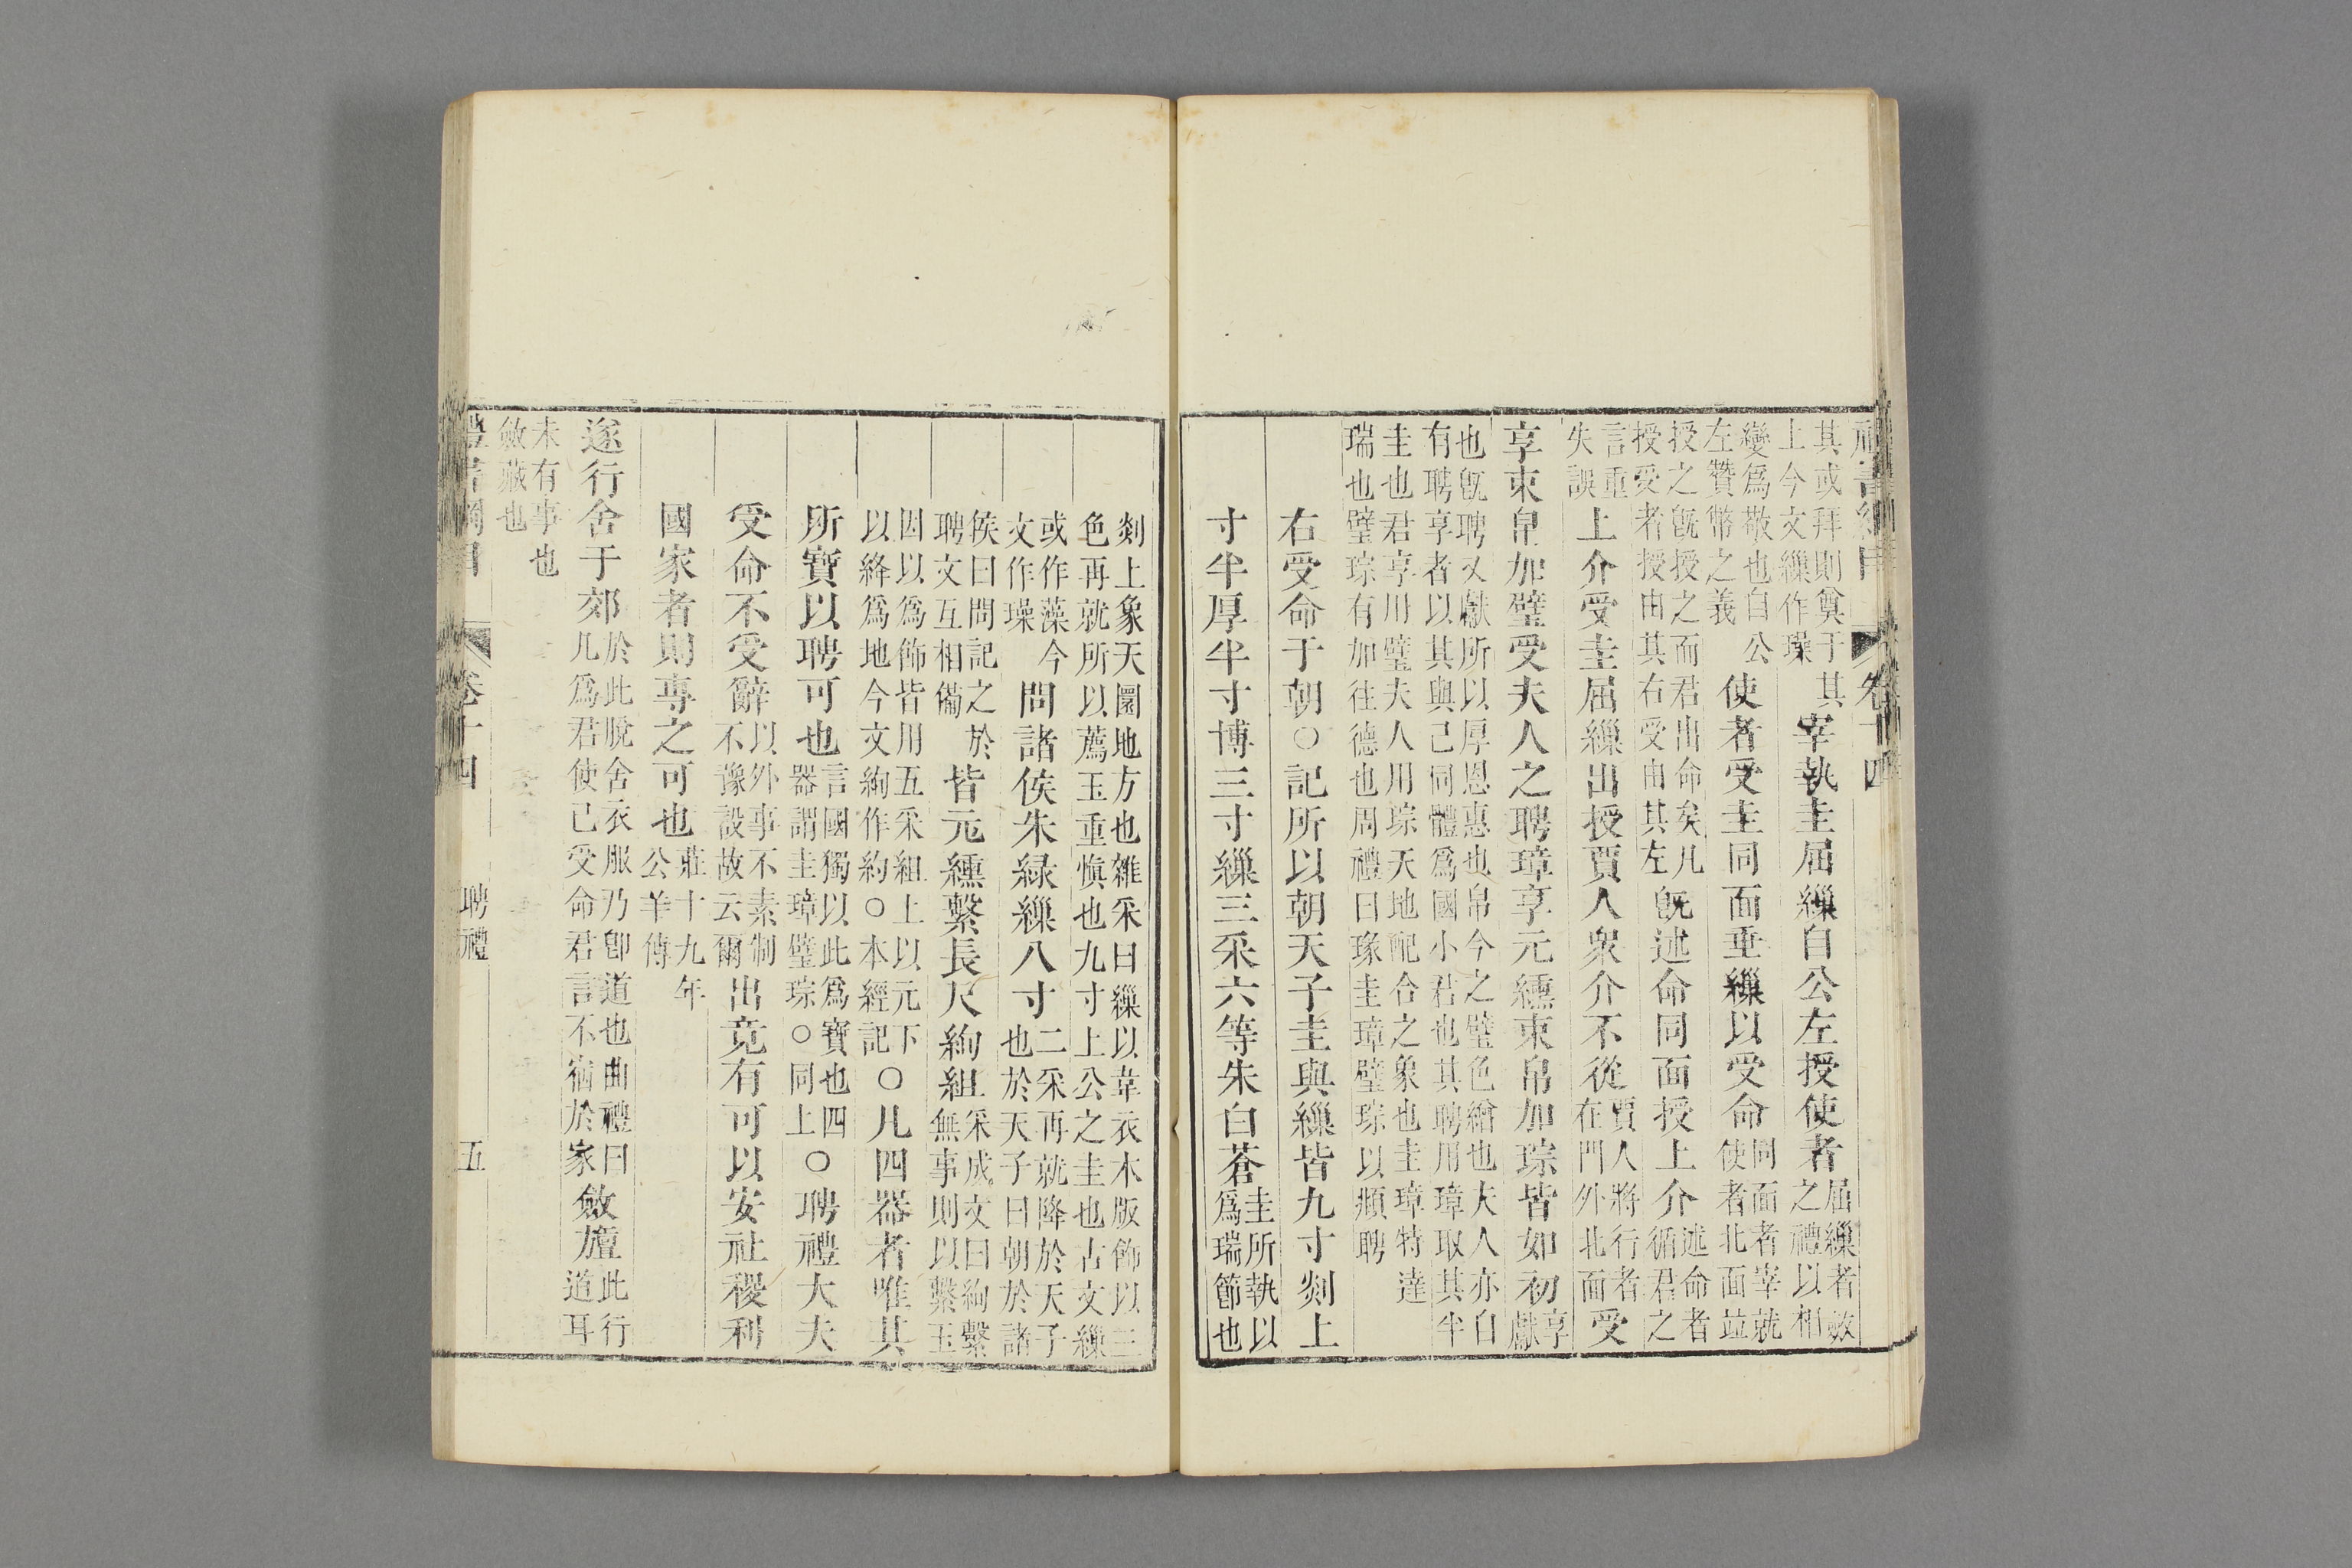 禮書綱目 卷十四
其或拜則奠于其
上今文繅作璪
宰執圭屈繅自公左授使者
屈繅者斂
之禮以相
變爲敬也自公
左贊幣之義
使者受圭同面垂繅以受命
同面者宰就
使者北面竝
授之旣授之而君出命矣凡
授受者授由其右受由其左
旣述命同面授上介
述命者
循君之
言重
失誤
上介受圭屈繅出授賈人衆介不從
賈人將行者
在門外北面
受
享束帛加璧受夫人之聘璋享元纁束帛加琮皆如初
享
獻
也旣聘又獻所以厚恩惠也帛今之璧色繒也夫人亦白
有聘享者以其與己同體爲國小君也其聘用璋取其半
圭也君享用璧夫人用琮天地配合之象也圭璋特達
瑞也璧琮有加往德也周禮曰瑑圭璋璧琮以頫聘
右受命于朝○記所以朝天子圭與繅皆九寸剡上
寸半厚半寸博三寸繅三采六等朱白蒼
圭所執以
爲瑞節也
剡上象天圜地方也雜采曰繅以韋衣木版飾以三
色再就所以薦玉重愼也九寸上公之圭也古文繅
或作藻今
文作璪
問諸侯朱綠繅八寸
二采再就降於天子
也於天子曰朝於諸
侯曰問記之於
聘文互相備
皆元纁繫長尺絢組
采成文曰絢繫
無事則以繫玉
因以爲飾皆用五采組上以元下
以絳爲地今文絢作約○本經記
○凡四器者唯其
所寶以聘可也
言國獨以此爲寶也四
器謂圭璋璧琮○同上
○聘禮大夫
受命不受辭
以外事不素制
不豫設故云爾
出竟有可以安社稷利
國家者則專之可也
莊十九年
公羊傳
遂行舍于郊
於此脫舍衣服乃卽道也曲禮曰
凡爲君使已受命君言不宿於家
斂旜
此行
道耳
未有事也
斂藏也
禮書綱目 卷十四 聘禮 五